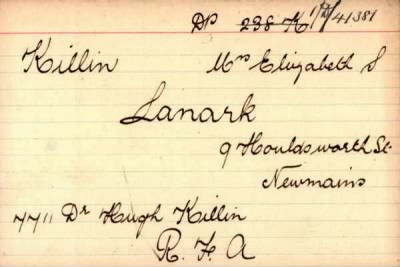 DP 238 K 1/D/41381
Killin Mrs Elizabeth S
Lanark
9 Houldsworth St.
Newmains
7711 Dr Hugh Killin
R. F. A